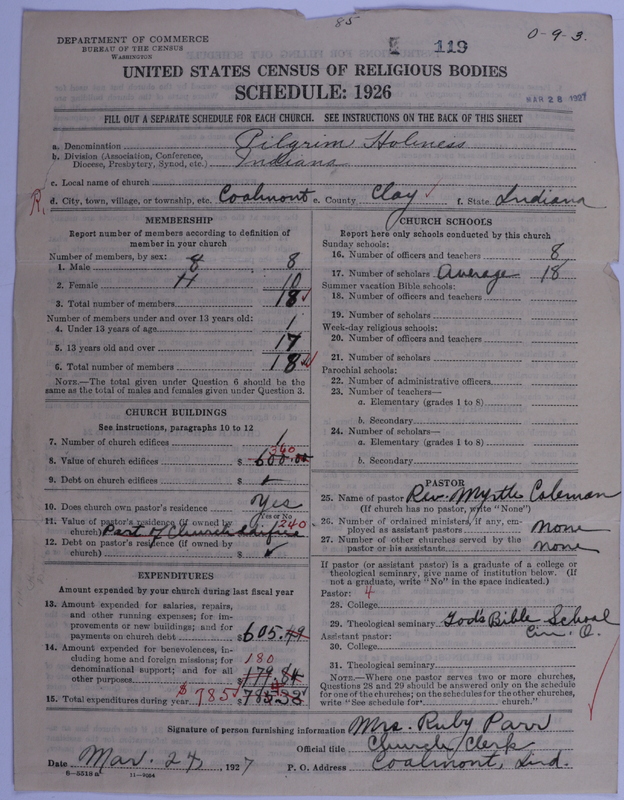 85
DEPARTMENT OF COMMERCE
BUREAU OF THE CENSUS
WASHINGTON
119
0-9-3.
UNITED STATES CENSUS OF RELIGIOUS BODIES
SCHEDULE: 1926
MAR 28 1927
FILL OUT A SEPARATE SCHEDULE FOR EACH CHURCH. SEE INSTRUCTIONS ON THE BACK OF THIS SHEET
a. Denomination Pilgrim Holiness
b. Division (Association, Conference, Diocese, Presbytery, Synod, etc.) Indiana
c. Local name of church
R. d. City, town, village, or township, etc. Coalmont e. County Clay f. State Indiana
MEMBERSHIP
Report number of members according to definition of
member in your church
Number of members, by sex:
1. Male 8 8
2. Female 10
3. Total number of members 18
Number of members under and over 13 years old:
4. Under 13 years of age 1
5. 13 years old and over 17
6. Total number of members 18
NOTE.—The total given under Question 6 should be the
same as the total of males and females given under Question 3.
CHURCH BUILDINGS
See instructions, paragraphs 10 to 12
7. Number of church edifices 1
360
8. Value of church edifices $ 600.00
9. Debt on church edifices $
10. Does church own pastor's residence Yes
Yes or No
11. Value of pastor's residence (if owned by 240
church) Part of Church edifice
12. Debt on pastor's residence (if owned by
church) $
EXPENDITURES
Amount expended by your church during last fiscal year
13. Amount expended for salaries, repairs,
and other running expenses; for im-
provements or new buildings; and for
payments on church debt $ 605.49
14. Amount expended for benevolences, in-
cluding home and foreign missions; for
denominational support; and for all 180
other purposes 179.84
15. Total expenditures during year $785 $ 785.33
CHURCH SCHOOLS
Report here only schools conducted by this church
Sunday schools:
16. Number of officers and teachers 8
17. Number of scholars Average 18
Summer vacation Bible schools:
18. Number of officers and teachers
19. Number of scholars
Week-day religious schools:
20. Number of officers and teachers
21. Number of scholars
Parochial schools:
22. Number of administrative officers
23. Number of teachers—
a. Elementary (grades 1 to 8)
b. Secondary
24. Number of scholars—
a. Elementary (grades 1 to 8)
b. Secondary
PASTOR
25. Name of pastor Rev. Myrtle Coleman
(If church has no pastor, write "None")
26. Number of ordained ministers, if any, em-
ployed as assistant pastors None
27. Number of other churches served by the
pastor or his assistants None
If pastor (or assistant pastor) is a graduate of a college or
theological seminary, give name of institution below. (If
not a graduate, write "No" in the space indicated.)
Pastor: 4
28. College
29. Theological seminary God's Bible School
Assistant pastor: Cin. O.
30. College
31. Theological seminary
NOTE.—Where one pastor serves two or more churches,
Questions 28 and 29 should be answered only on the schedule
for one of the churches; on the schedules for the other churches,
write "See schedule for church."
Signature of person furnishing information Mrs. Ruby Parr
Official title Church Clerk
Date Mar. 24, 1927 P. O. Address Coalmont, Ind.